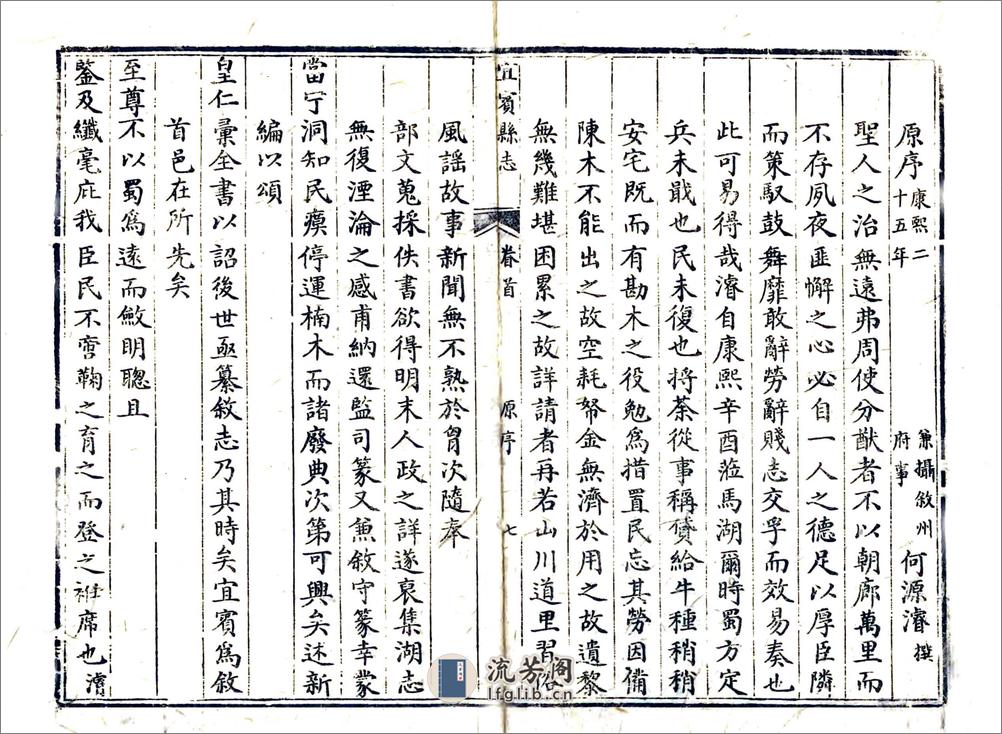 原序 康熙二十五年 兼攝敘州府事 何源濬 撰
聖人之治無遠弗周使分猷者不以朝廊萬里而
不存夙夜匪懈之心必自一人之德足以厚臣隣
而策馭鼓舞靡敢辭勞辭賤志交孚而效易奏也
此可易得哉濬自康熙辛酉蒞馬湖爾時蜀方定
兵未戢也民未復也捋荼從事稱貸給牛種稍稍
安宅既而有勘木之役勉爲措置民忘其勞因備
陳木不能出之故空耗帑金無濟於用之故遺黎
無幾難堪困累之故詳請者再若山川道里習俗
宜賓縣志 卷首 原序 七
風謡故事新聞無不熟於胷次隨奉
部文蒐採佚書欲得明末人政之詳遂裒集湖志
無復湮淪之感甫納還監司篆又兼敘守篆幸蒙
當宁洞知民瘼停運楠木而諸廢典次第可興矣述新
編以頌
皇仁彙全書以詔後世亟纂敘志乃其時矣宜賓爲敘
首邑在所先矣
至尊不以蜀爲遠而斂明聰且
鑒及纖毫庇我臣民不啻鞠之育之而登之袵席也濬
流芳阁
lfglib.cn